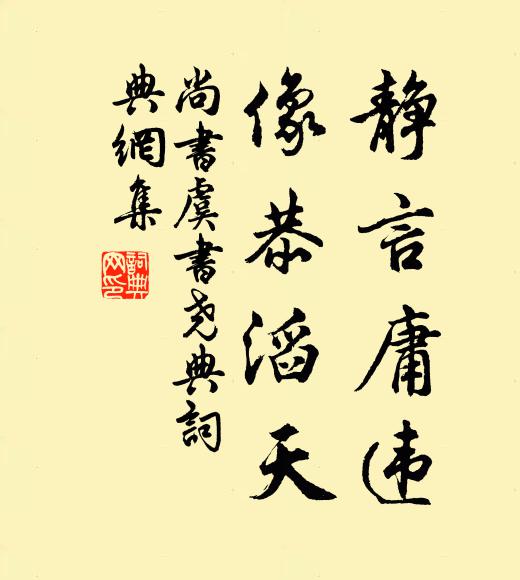 静言庸违
像恭滔天
尚書虞書尧典詞
典網集
詞典網印